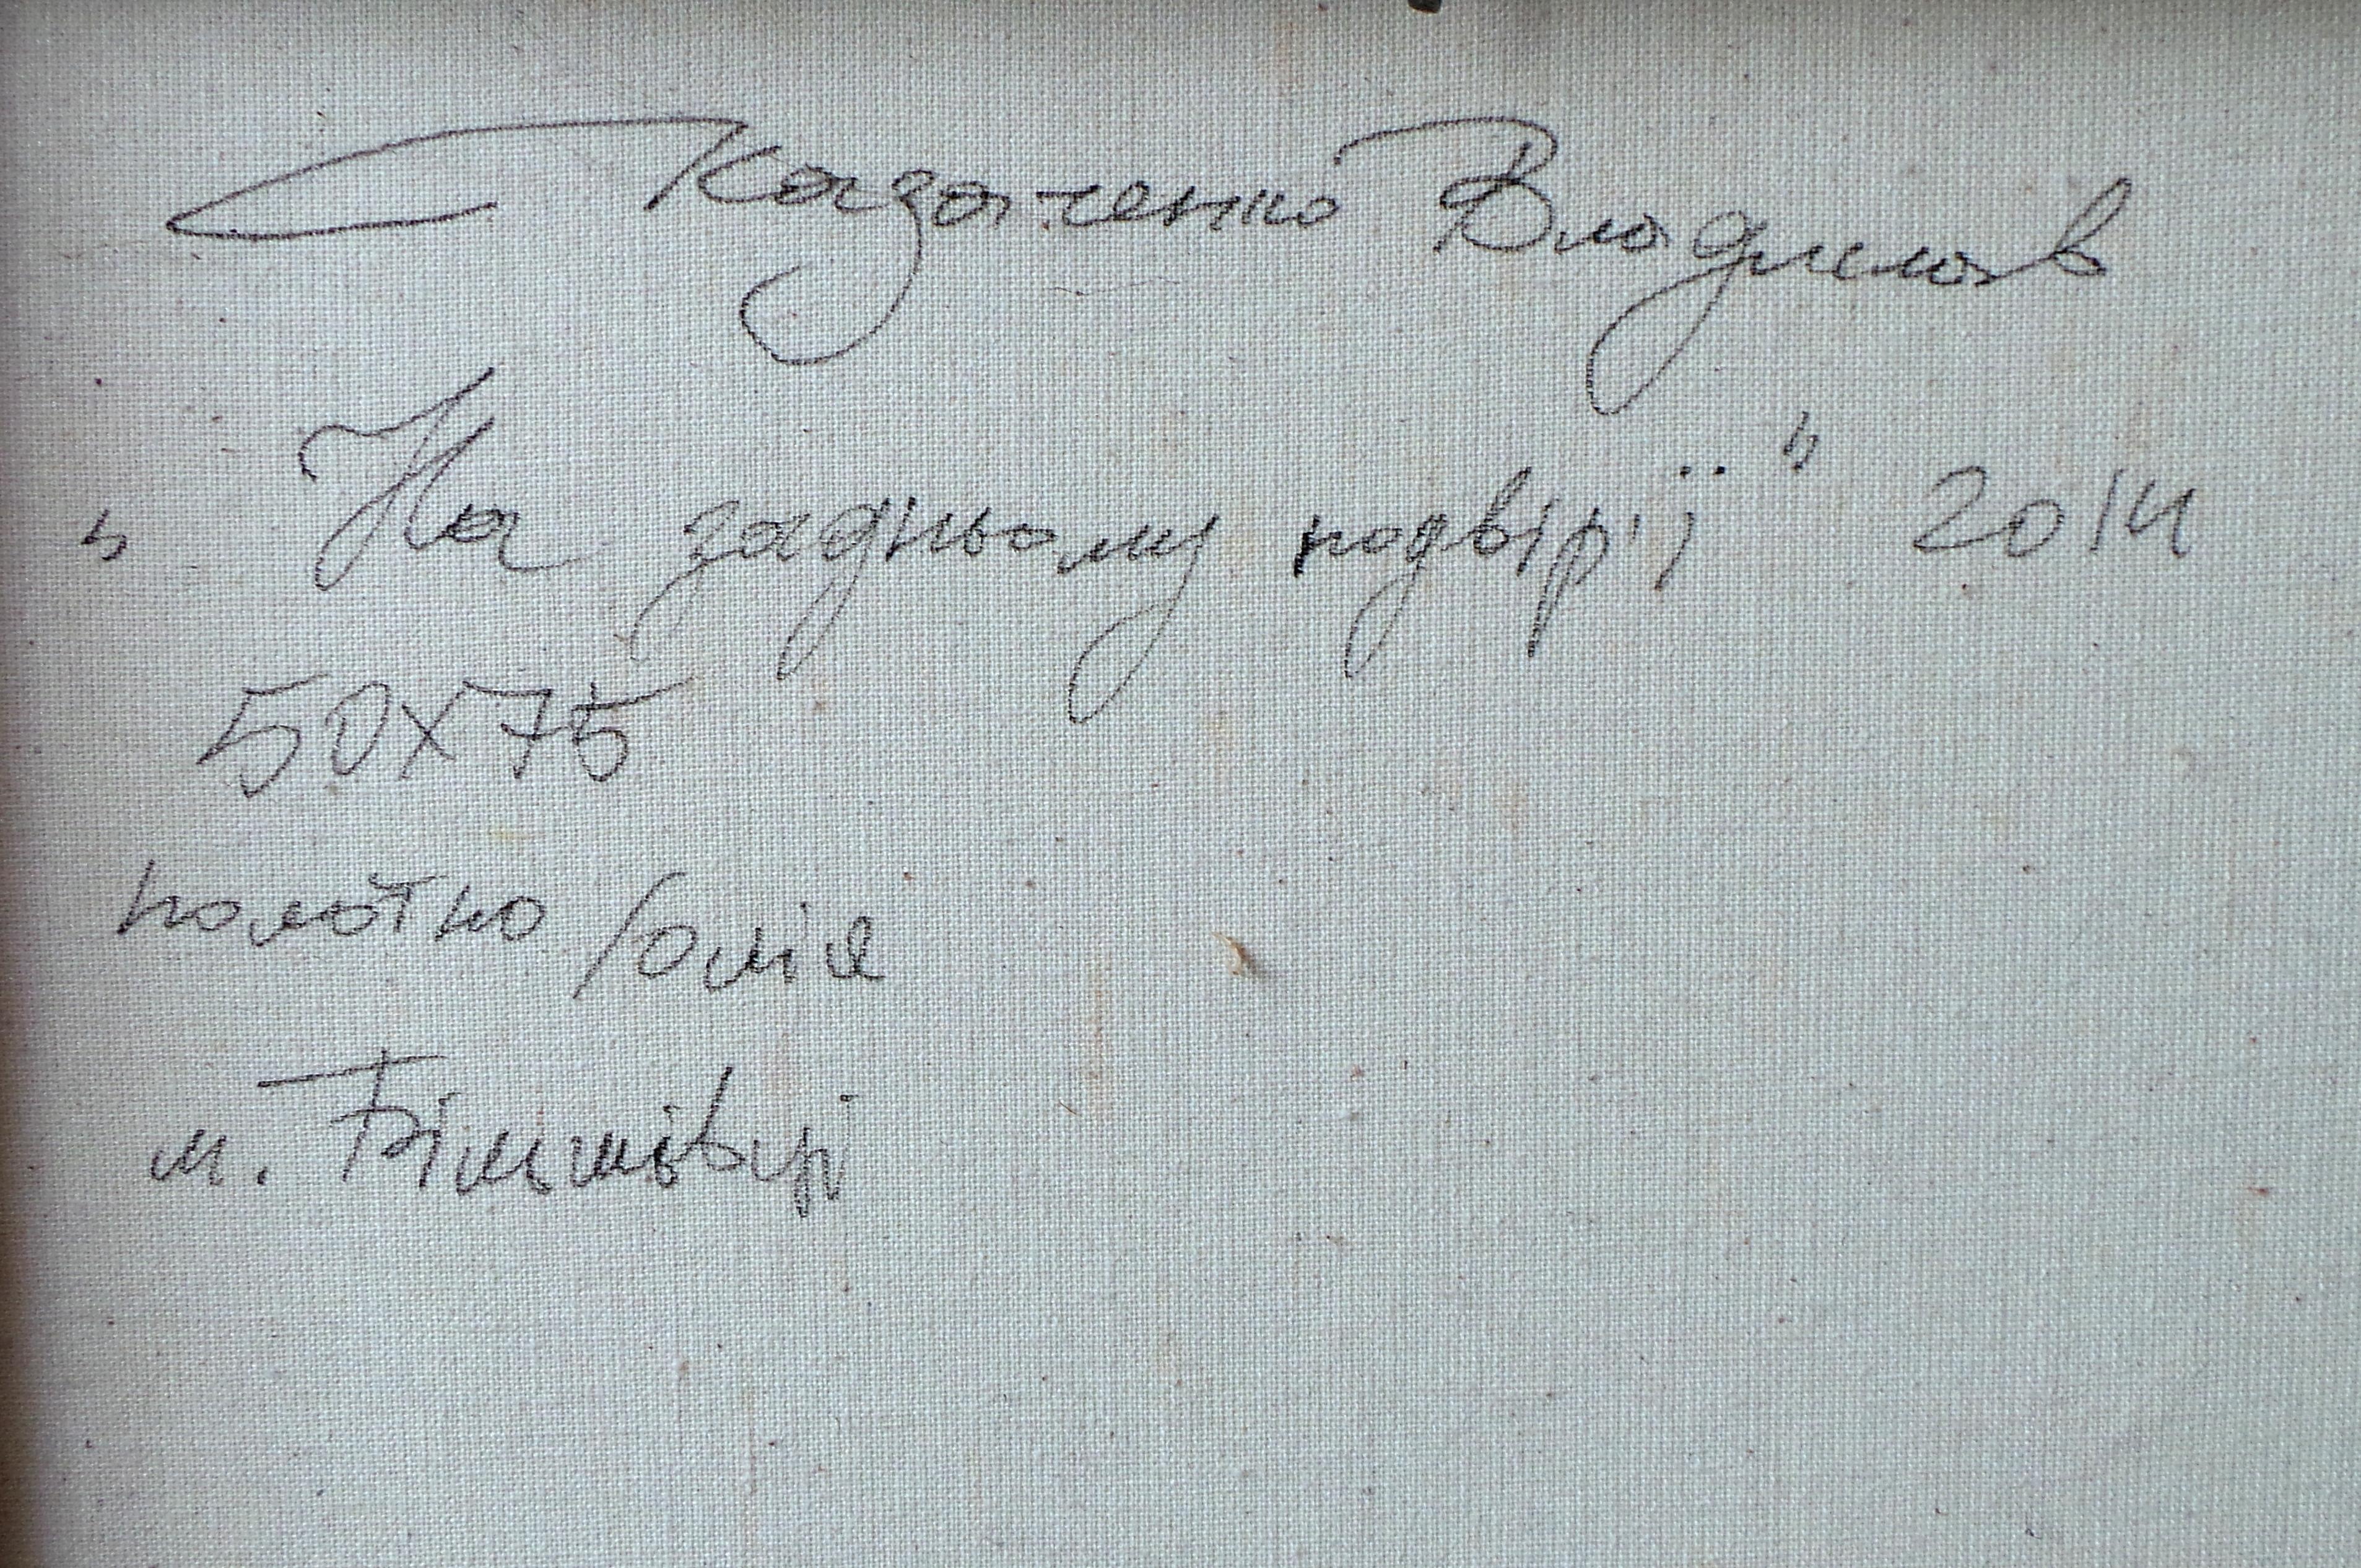 Казаченко Владислав
„На задньому подвірії" 2014
50х75
полотно/олія
м. Більшівці